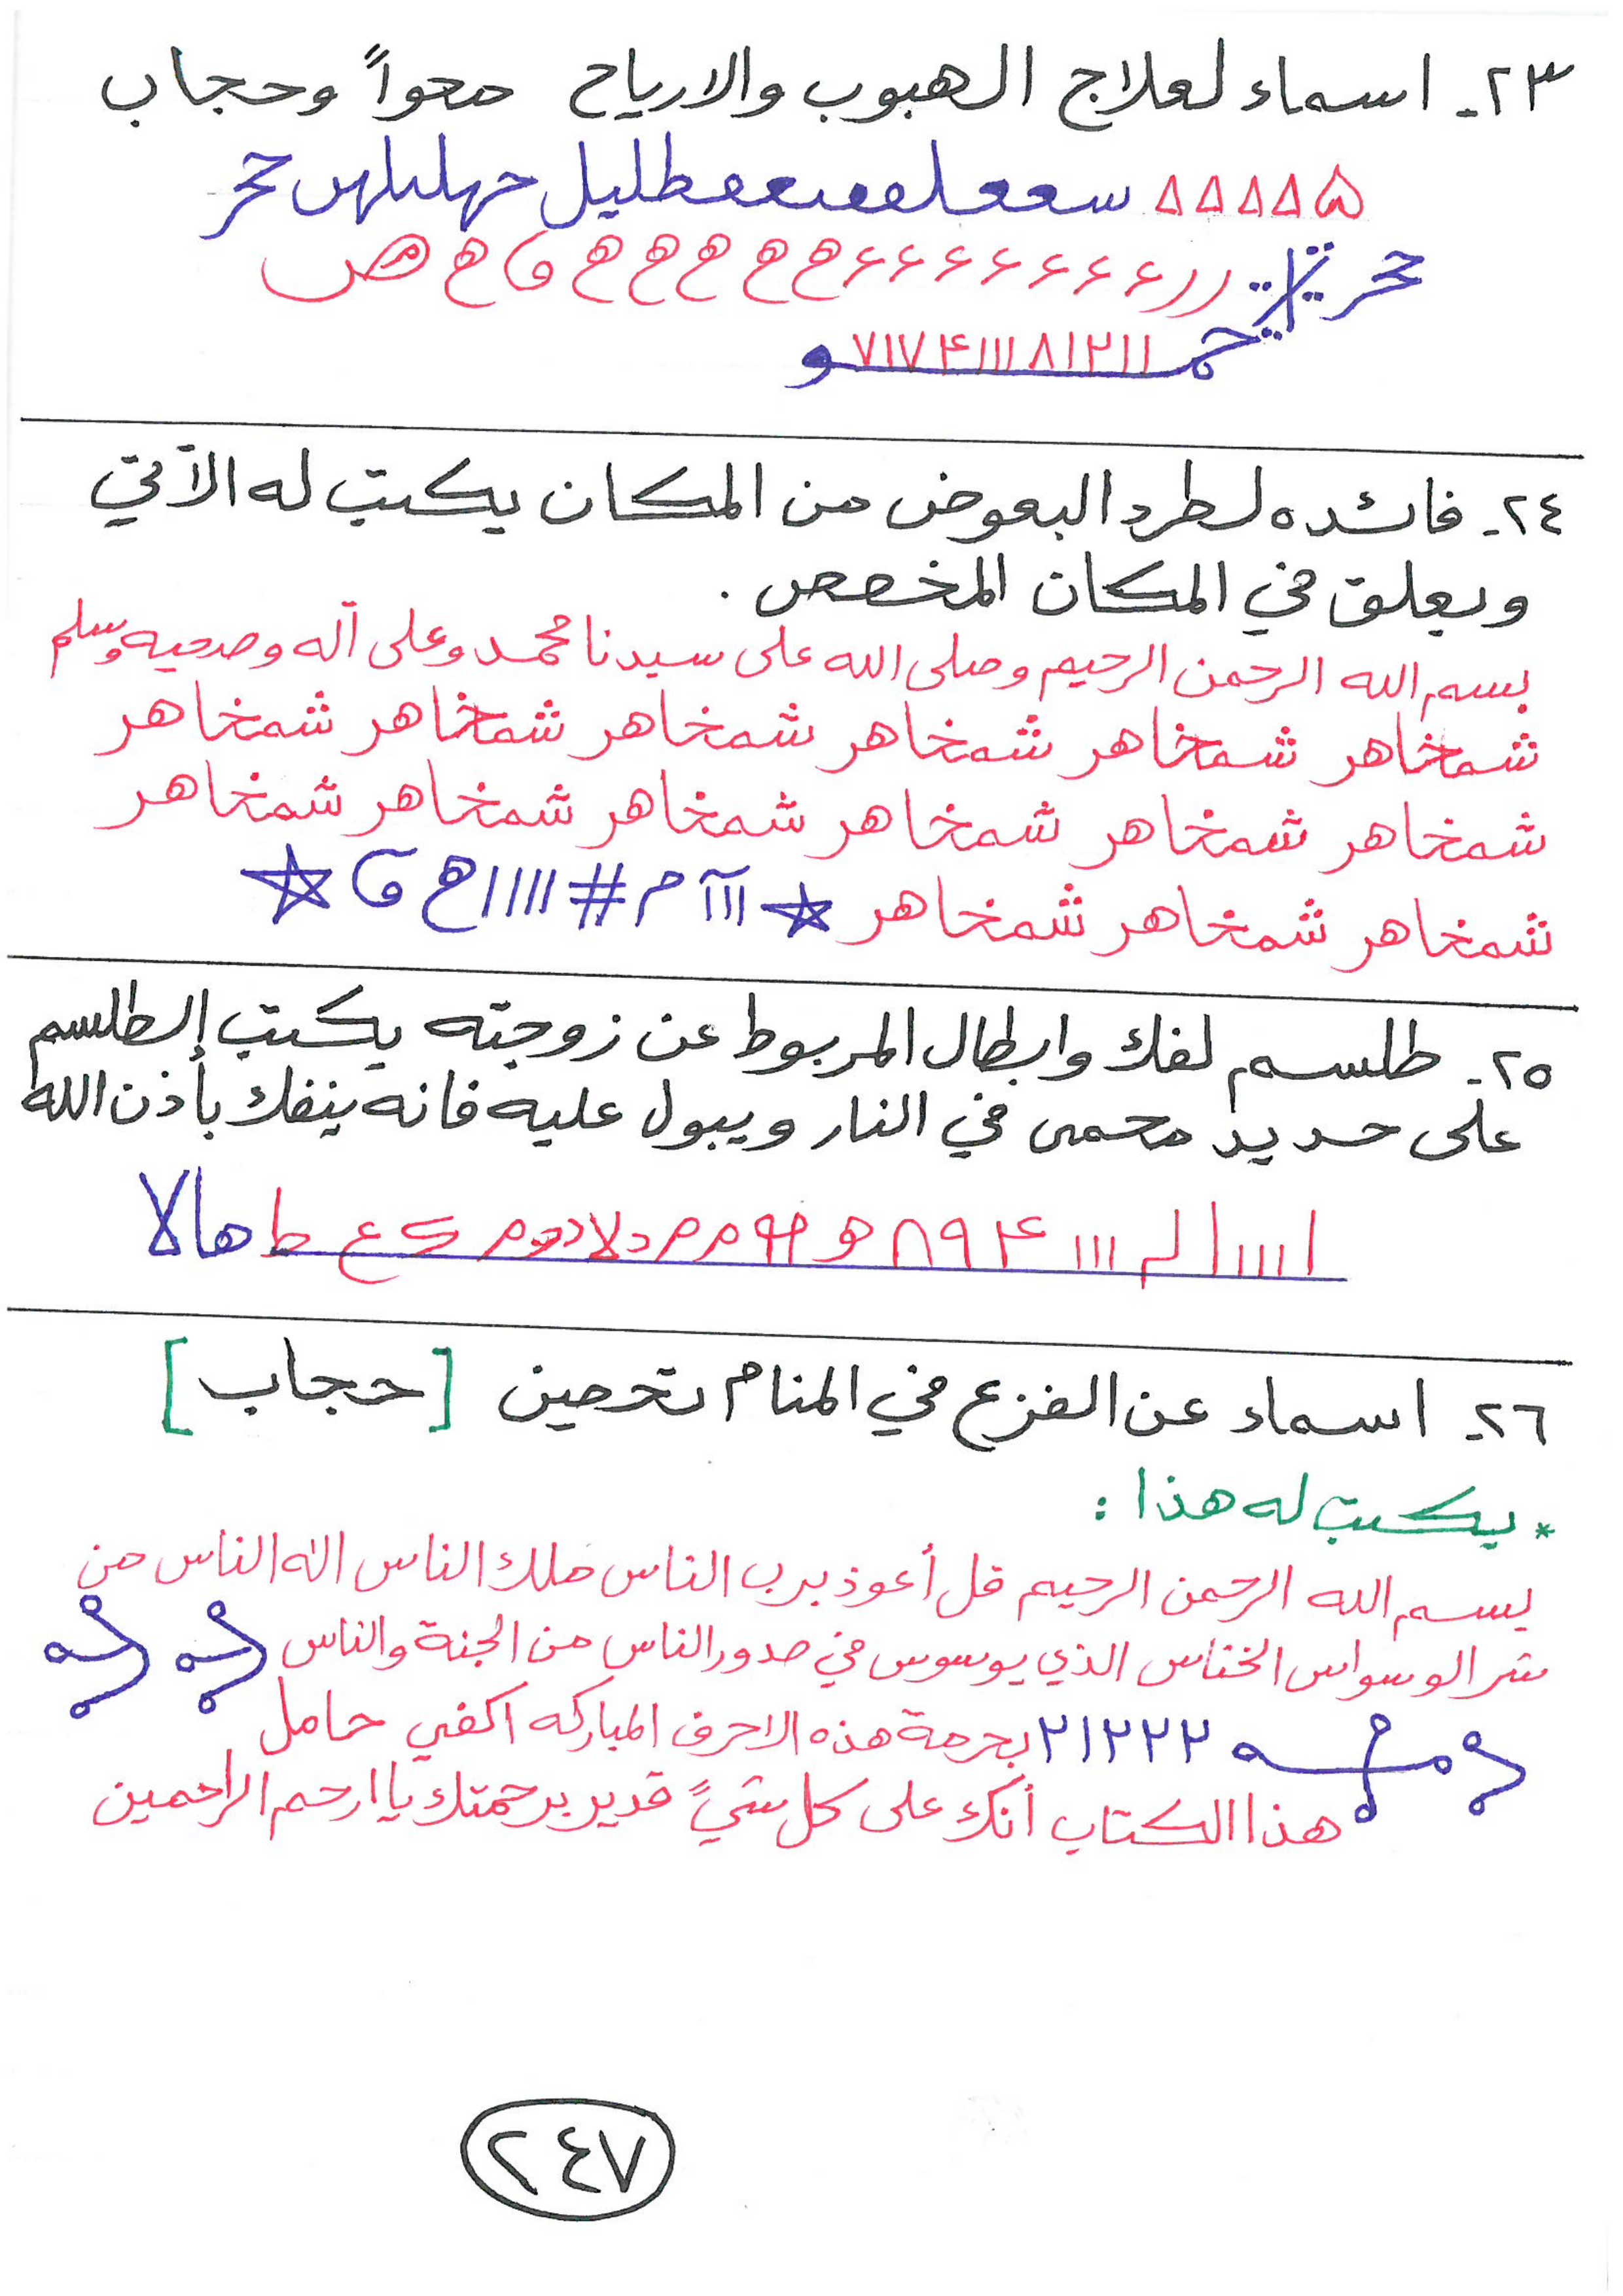 ٢٣- اسماء لعلاج الهبوب والارياح محواً وحجاب
ححر
١١٢١٨١١١۴٧١٧
٢٤- فائده لطرد البعوض من المكان يكتب له الآتي
ويعلق في المكان المخصص .
بسم الله الرحمن الرحيم وصلى الله على سيدنا محمد وعلى آله وصحبه وسلم
شمخاهر شمخاهر شمخاهر شمخاهر شمخاهر شمخاهر
شمخاهر شمخاهر شمخاهر شمخاهر شمخاهر شمخاهر
شمخاهر شمخاهر شمخاهر ★ ااآ م # ااااح ☆
٢٥- طلسم لفك وابطال المربوط عن زوجته يكتب الطلسم
على حديد محمى في النار ويبول عليه فانه ينفك بأذن الله
ط هالا
٢٦- اسماء عن الفزع في المنام تحصين [حجاب]
* يكتب له هذا :
بسم الله الرحمن الرحيم قل أعوذ برب الناس ملك الناس اله الناس من
شر الوسواس الخناس الذي يوسوس في صدور الناس من الجنة والناس
٢١٢٢٢ بحرمة هذه الاحرف المباركه اكفي حامل
هذا الكتاب أنك على كل شيً قدير برحمتك يا ارحم الراحمين
٢٤٧